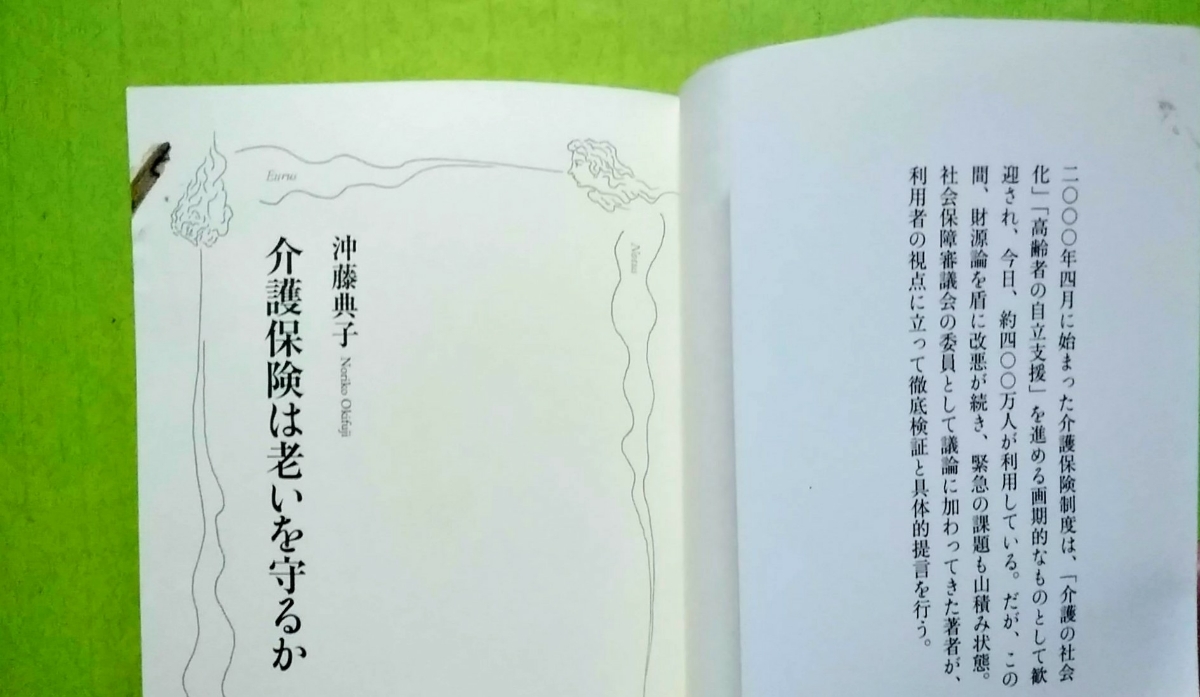 二〇〇〇年四月に始まった介護保険制度は、「介護の社会
化」「高齢者の自立支援」を進める画期的なものとして歓
迎され、今日、約四〇〇万人が利用している。だが、この
間、財源論を盾に改悪が続き、緊急の課題も山積み状態。
社会保障審議会の委員として議論に加わってきた著者が、
利用者の視点に立って徹底検証と具体的提言を行う。
Notus
沖藤典子 Noriko Okifuji
介護保険は老いを守るか
Eurus